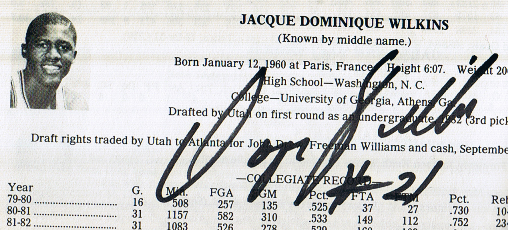 JACQUE DOMINIQUE WILKINS
(Known by middle name.)
Born January 12, 1960 at Paris, France. Height 6:07. Weight 20
High School—Washington, N. C.
College—University of Georgia, Athens, Ga.
Drafted by Utah on first round as an undergraduate, 1982 (3rd pick
Draft rights traded by Utah to Atlanta for John Drew, Freeman Williams and cash, Septembe
—COLLEGIATE RECORD—
Year G. Min. FGA FGM Pct. FTA FTM Pct. Reb
79-80 16 508 257 135 .525 37 27 .730 10
80-81 31 1157 582 310 .533 149 112 .752 23
81-82 31 1083 526 278
#21